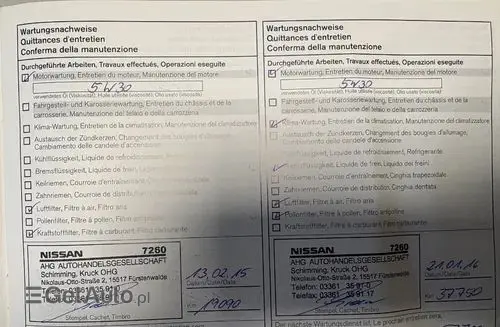 Wartungsnachweise
Quittances d'entretien
Conferma della manutenzione
Durchgeführte Arbeiten, Travaux effectués, Operazioni eseguite
Motorwartung, Entretien du moteur, Manutenzione del motore
5W30
verwendetes Öl (Viskosität), Huile utilisée (viscosité), Olio usato (viscosità)
Fahrgestell- und Karosseriewartung, Entretien du châssis et de la
carrosserie, Manutenzione del telaio e della carrozzeria
Klima-Wartung, Entretien de la climatisation, Manutenzione del climatizzatore
Austausch der Zündkerzen, Changement des bougies d'allumage,
Cambiamento delle candele d'accensione
Kühlflüssigkeit, Liquide de
Bremsflüssigkeit, Liquide de frein,
Keilriemen, Courroie d'entraînement,
Zahnriemen, Courroie de distribution,
Luftfilter, Filtre à air, Filtro aria
Pollenfilter, Filtre à pollen, Filtro
Kraftstofffilter, Filtre à carburant, Filtro carburante
NISSAN 7260
AHG AUTOHANDELSGESELLSCHAFT
Schimming, Kruck OHG
Nikolaus-Otto-Straße 2, 15517 Fürstenwalde
13.02.15
Datum/Date/Data
Km 19090
Stempel, Cachet, Timbro
Wartungsnachweise
Quittances d'entretien
Conferma della manutenzione
Durchgeführte Arbeiten, Travaux effectués, Operazioni eseguite
Motorwartung, Entretien du moteur, Manutenzione del motore
5W30
verwendetes Öl (Viskosität), Huile utilisée (viscosité), Olio usato (viscosità)
Fahrgestell- und Karosseriewartung, Entretien du châssis et de la
carrosserie, Manutenzione del telaio e della carrozzeria
Klima-Wartung, Entretien de la climatisation, Manutenzione del climatizzatore
Austausch der Zündkerzen, Changement des bougies d'allumage,
Cambiamento delle candele d'accensione
Kühlflüssigkeit, Liquide de refroidissement, Refrigerante
Bremsflüssigkeit, Liquide de frein, Liquido dei freni
Keilriemen, Courroie d'entraînement, Cinghia trapezoidale
Zahnriemen, Courroie de distribution, Cinghia dentata
Luftfilter, Filtre à air, Filtro aria
Pollenfilter, Filtre à pollen, Filtro antipolline
Kraftstofffilter, Filtre à carburant, Filtro carburante
NISSAN 7260
AHG AUTOHANDELSGESELLSCHAFT
Schimming, Kruck OHG
Nikolaus-Otto-Straße 2, 15517 Fürstenwalde
Telefon: 03361 35 91-0
Telefax: 03361 35 91 17
21.01.16
Datum/Date/Data
Km 37750
Stempel, Cachet, Timbro
GetAuto.pl